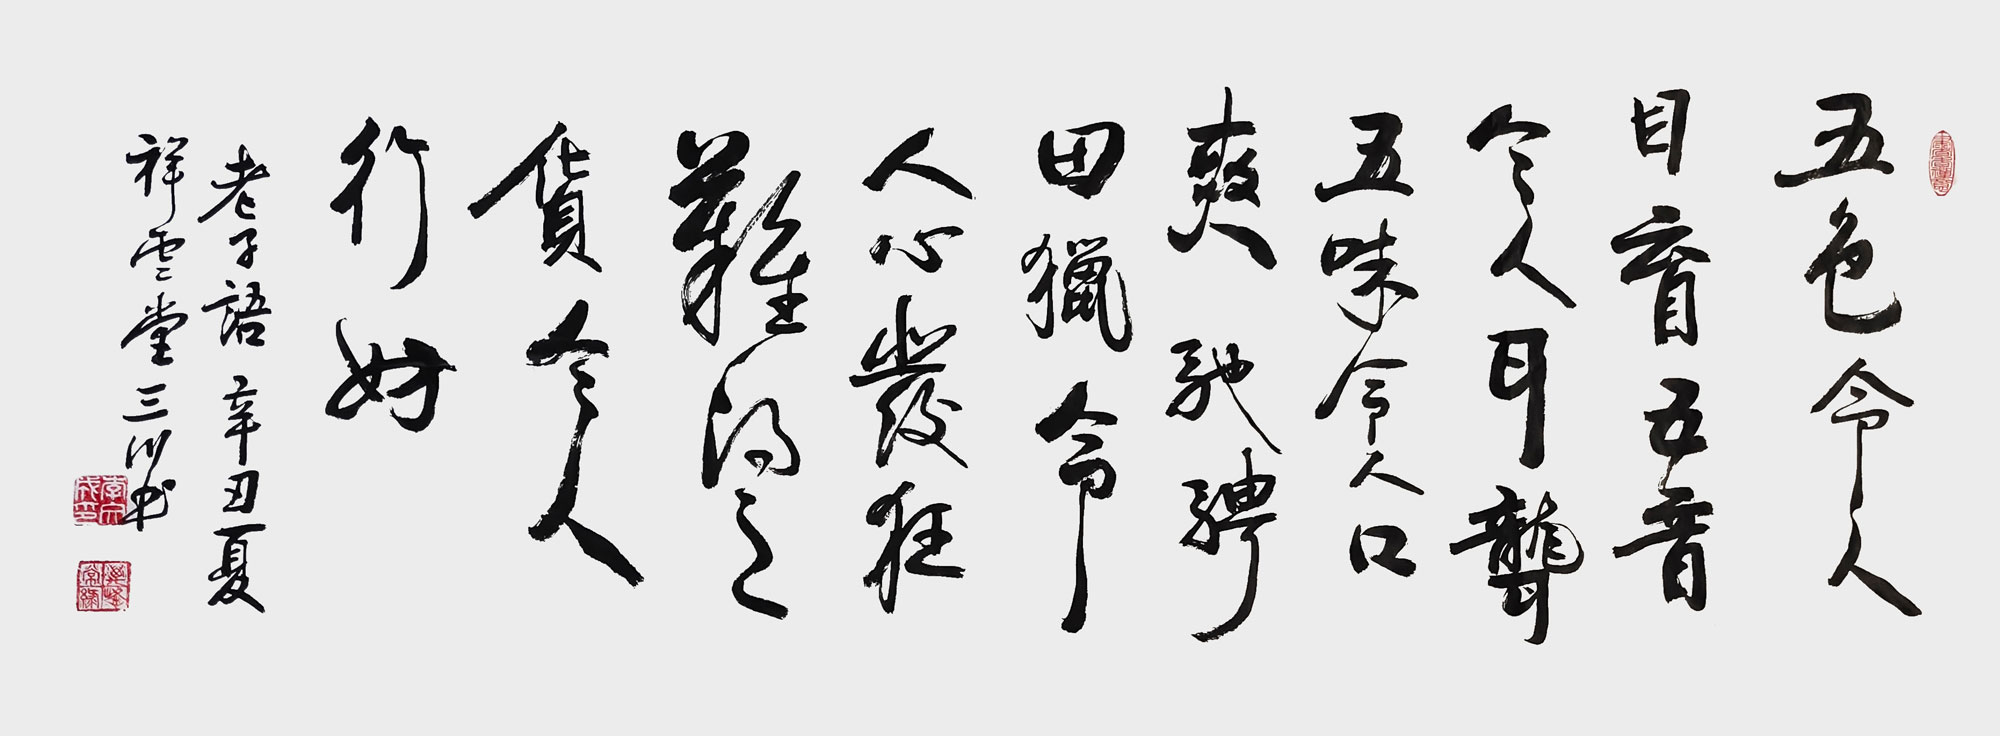 五色令人
目盲五音
令人耳聾
五味令人口
爽馳騁
田獵令
人心發狂
難得之
貨令人
行妨
老子語辛丑夏
祥雲堂三川书